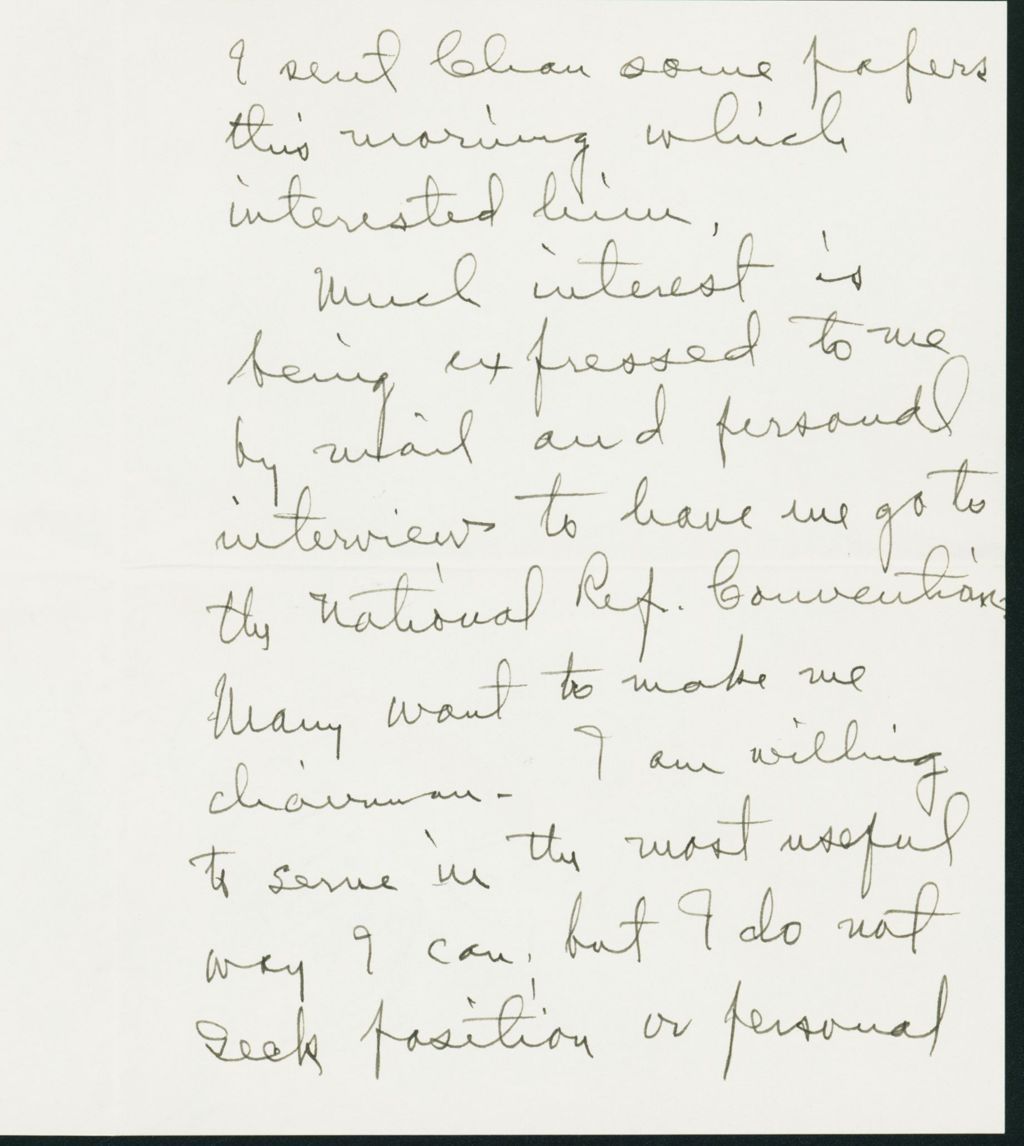 I sent Chan some papers
this morning which
interested him.
Much interest is
being expressed to me
by mail and personal
interview to have me go to
the National Rep. Convention.
Many want to make me
chairman - I am willing
to serve in the most useful
way I can, but I do not
seek position or personal